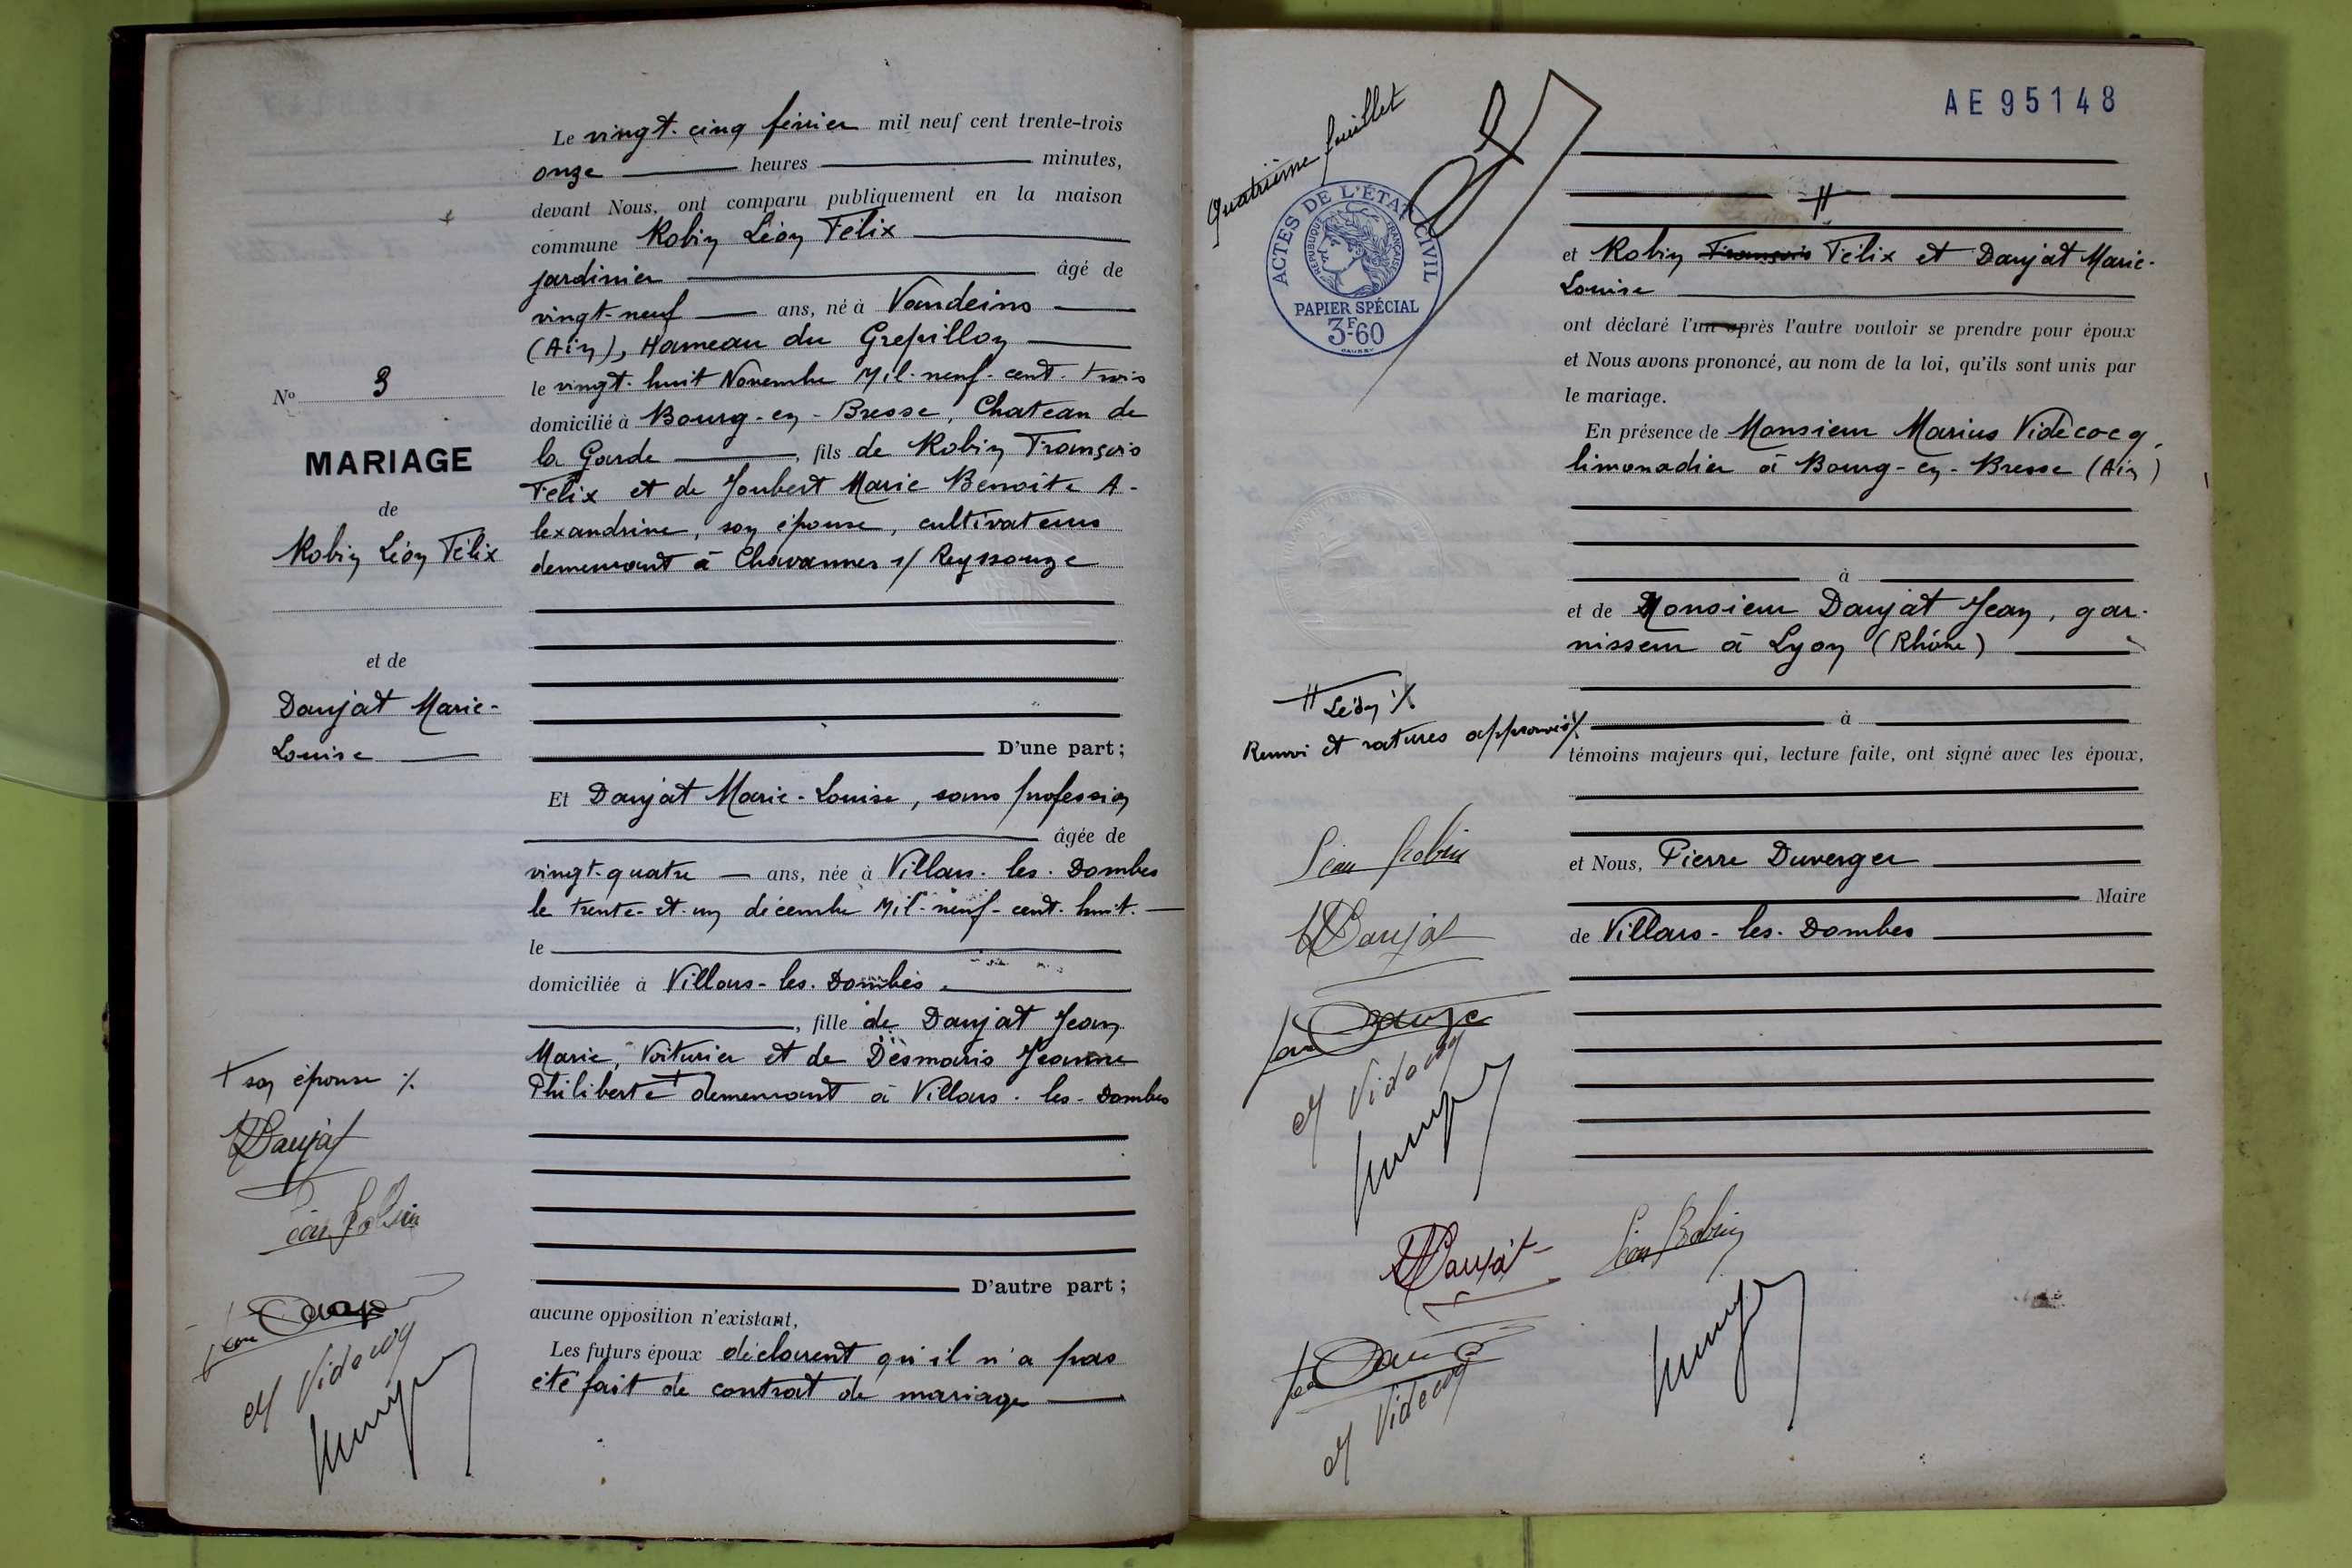 Le vingt-cinq février mil neuf cent trente-trois
onze heures minutes,
devant Nous, ont comparu publiquement en la maison
commune Robin Léon Félix
jardinier âgé de
vingt-neuf ans, né à Vandeins
(Ain), Hameau du Grepillon
le vingt-huit Novembre Mil-neuf-cent-trois
domicilié à Bourg-en-Bresse, Chateau de
la Garde, fils de Robin François
Félix et de Joubert Marie Benoite A-
lexandrine, son épouse, cultivateurs
demeurant à Chavannes s/ Reyssouze
D'une part;
Et Daujat Marie-Louise, sans profession
âgée de
vingt-quatre ans, née à Villars-les-Dombes
le trente-et-un décembre Mil-neuf-cent-huit.
le
domiciliée à Villars-les-Dombes
, fille de Daujat Jean
Marie, Voiturier et de Desmaris Jeanne
Philiberte + demeurant à Villars-les-Dombes
D'autre part;
aucune opposition n'existant,
Les futurs époux déclarent qu'il n'a pas
été fait de contrat de mariage
No 3
MARIAGE
de
Robin Léon Félix
et de
Daujat Marie-
Louise
+ son épouse ./.
Daujat
Léon Robin
Jean Dauj
M Videcoq
Quatrième feuillet
ACTES DE L'ÉTAT CIVIL
RÉPUBLIQUE FRANÇAISE
PAPIER SPÉCIAL
3F-60
AE95148
#
et Robin François Félix et Daujat Marie-
Louise
ont déclaré l'un après l'autre vouloir se prendre pour époux
et Nous avons prononcé, au nom de la loi, qu'ils sont unis par
le mariage.
En présence de Monsieur Marius Vidècocq,
limonadier à Bourg-en-Bresse (Ain)
à
et de Monsieur Daujat Jean, gar-
nisseur à Lyon (Rhône)
à
témoins majeurs qui, lecture faite, ont signé avec les époux,
et Nous, Pierre Duverger
Maire
de Villars-les-Dombes
# Léon ./.
Renvoi et ratures approuvés ./.
Léon Robin
Daujat
Jean Dauja
M Videcoq
Daujat
Léon Robin
Jean Dau
M Videcoq